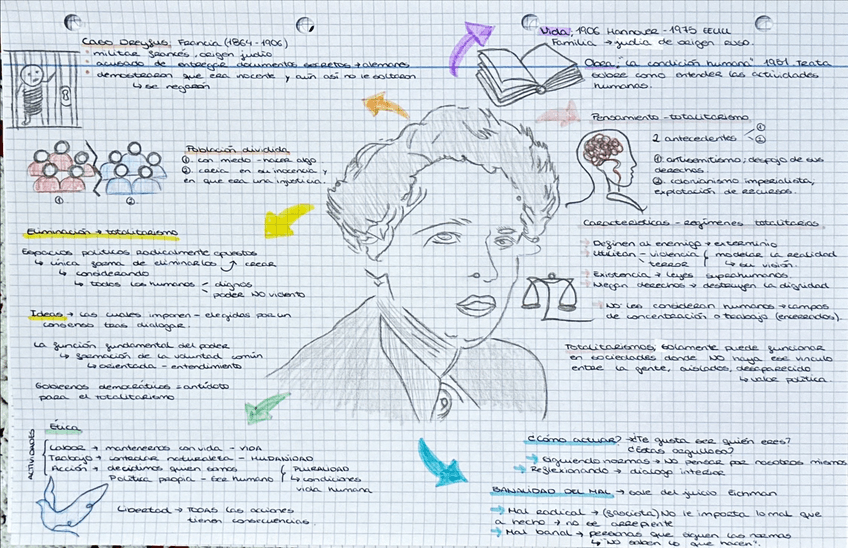 Caso Dreyfus, Francia (1864-1906)
• militar francés, origen judío
• acusado de entregar documentos secretos → alemanes
• demostraron que era inocente y aún así no le soltaron
↳ se negaron
Población dividida
① con miedo - hacer algo
② creía en su inocencia y
en que era una injusticia.
① ②
Eliminación → totalitarismo
Espacios políticos radicalmente opuestos
↳ única forma de eliminarlos crear
↳ considerando
↳ todos los humanos dignos
poder NO violento
Ideas → las cuales imponen - elegidas por un
consenso tras dialogar.
La función fundamental del poder
↳ formación de la voluntad común
↳ orientada - entendimiento
Gobiernos democráticos = antídoto
para el totalitarismo
Ética
ACTIVIDADES
Labor → mantenernos con vida - VIDA
Trabajo → controlar naturaleza - HUMANIDAD
Acción → decidimos quien somos
Política propia - ser humano
PLURALIDAD
condiciones
vida humana
Libertad → TODAS las acciones
tienen consecuencias.
Vida, 1906 Hannover - 1975 EEUU
Familia → judía de origen ruso.
Obra, "La condición humana" 1951. Trata
sobre como entender las actividades
humanas.
Pensamiento - totalitarismo
2 antecedentes ① ②
① antisemitismo; despojo de sus
derechos
② colonianismo imperialista,
explotación de recursos.
Características - regímenes totalitarios
→ Definen al enemigo → exterminio
→ Utilitan - violencia modelar la realidad
terror ↳ su visión
→ Existencia → leyes suprahumanas.
→ Niegan derechos → destruyen la dignidad
→ No les consideran humanos → campos
de concentración o trabajo (encerrados).
Totalitarismos, solamente puede funcionar
en sociedades donde NO haya ese vínculo
entre la gente, aislados, desaparecido
↳ valor política.
¿Cómo actuar? → ¿Te gusta ser quién eres?
¿Estás orgulloso?
→ Siguiendo normas → No pensar por nosotros mismos
→ Reflexionando → dialogo interior
BANALIDAD DEL MAL → sale del juicio Eichman
→ Mal radical → (fascista) No le importa lo mal que
a hecho → no se arrepiente
→ Mal banal → personas que siguen las normas
↳ "No saben lo que hacen".